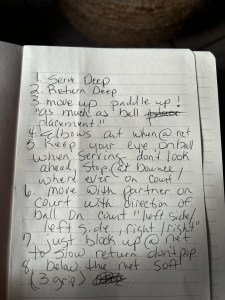 1. Serve Deep
2. Return Deep
3. move up paddle up!
"as much as ball
placement"
4. Elbows out when @ net
5 Keep your eye on ball
when serving don't look
ahead, Stop at bounce/
where ever on court!
6. move with partner on
court with direction of
ball on court "left side/
left side, right/right"
7. just block up @ net
to slow return don't pop
8. below the net soft
(3 grip)